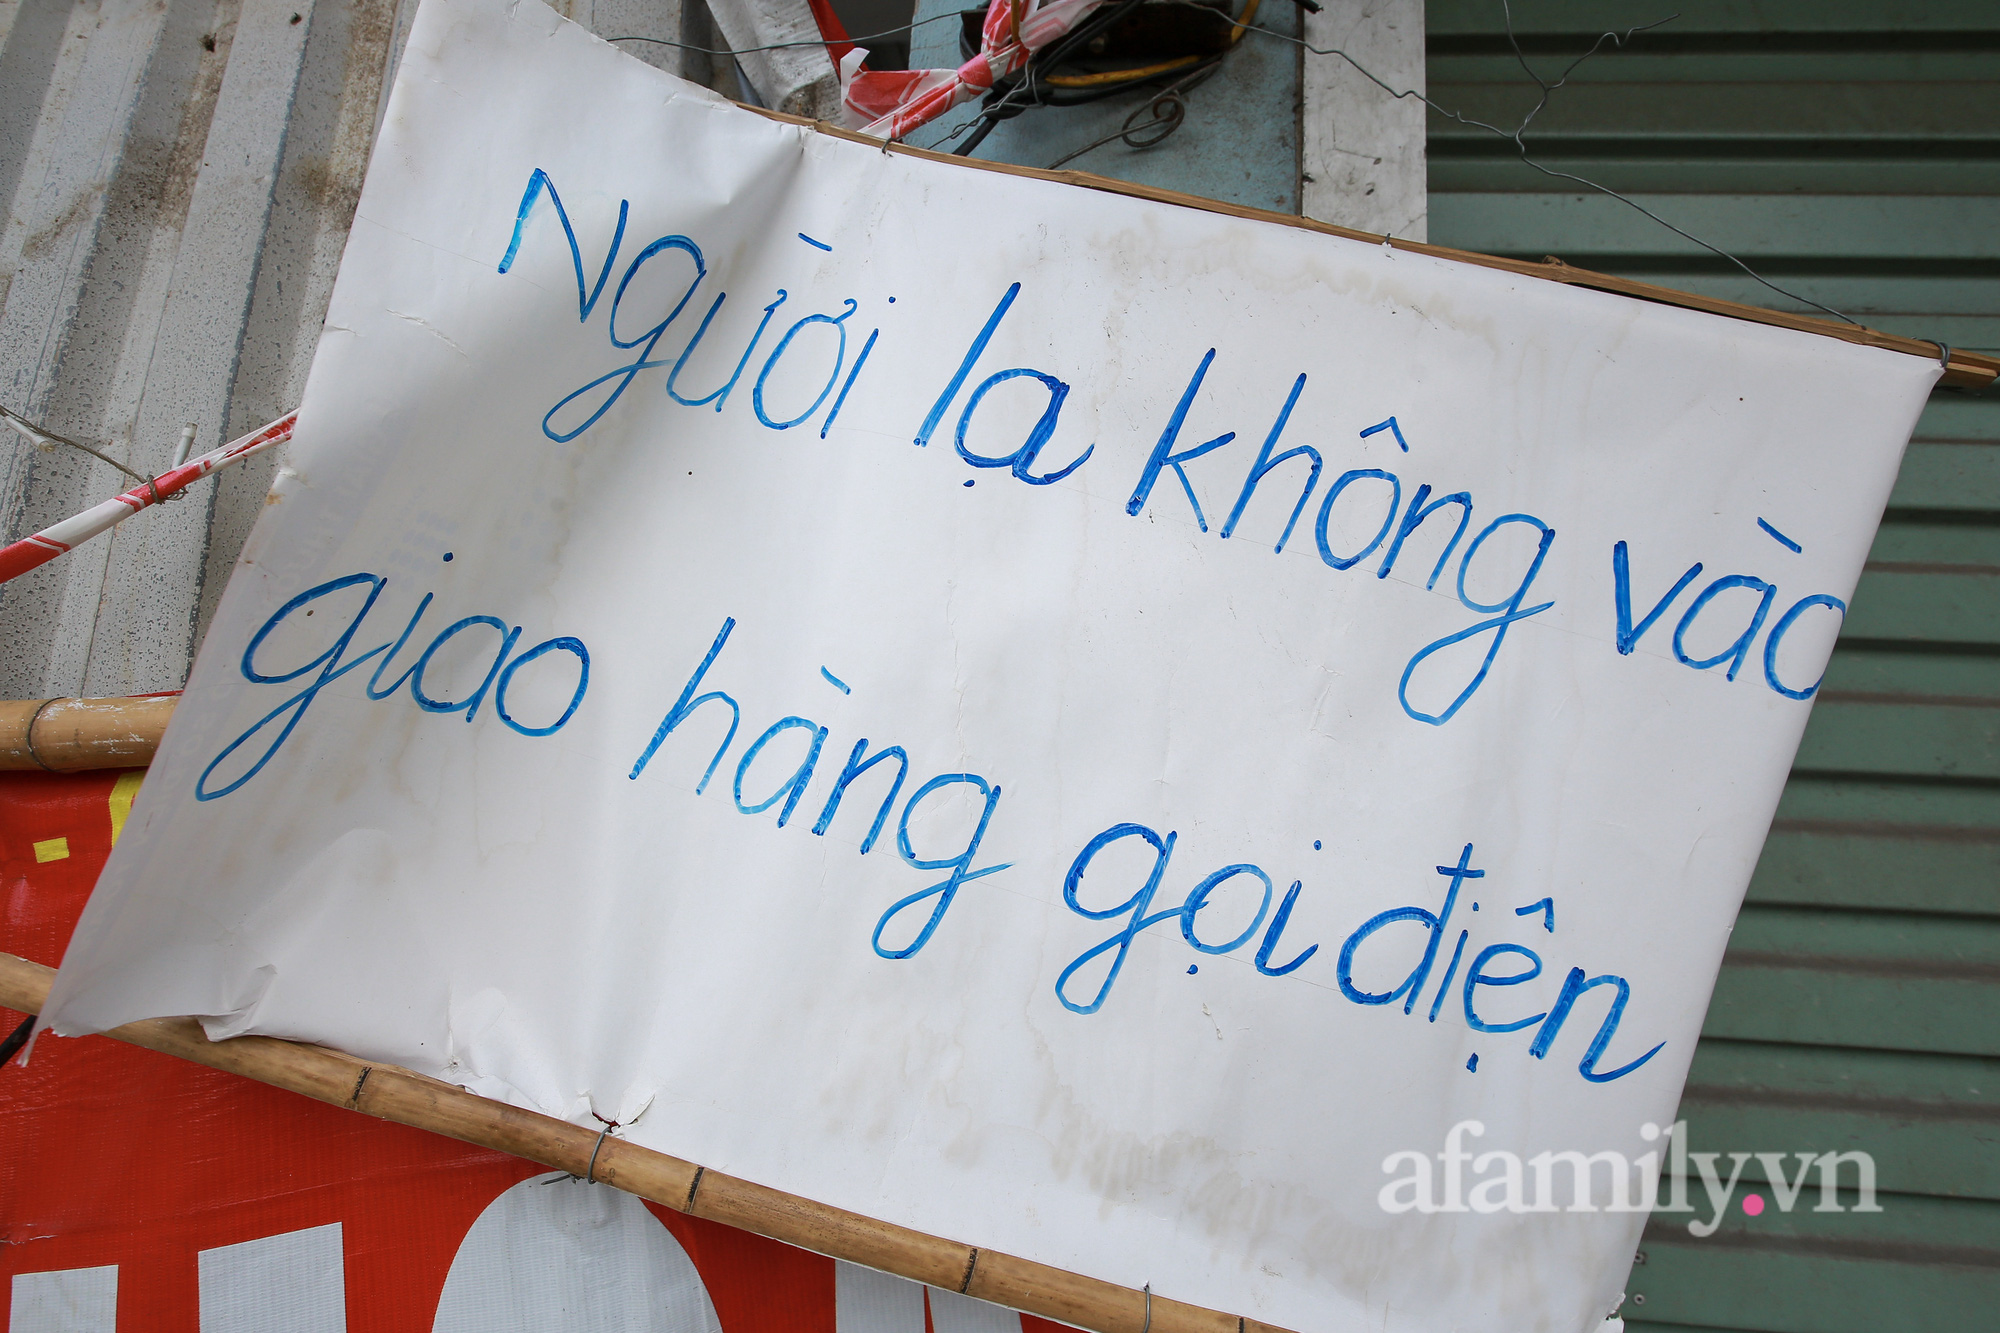 Người lạ không vào
giao hàng gọi điện
afamily.vn